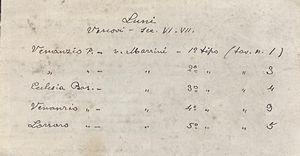 Luni
Vescovi - Sec. VI. VII.
Venanzio P. - v. Marrini - 1º tipo (tav. n. 1)
" " - " 2º " " 3
Eclesia Bas. - " 3º " " 4
Venanzio " 4º " " 9
Lazzaro " 5º " " 5